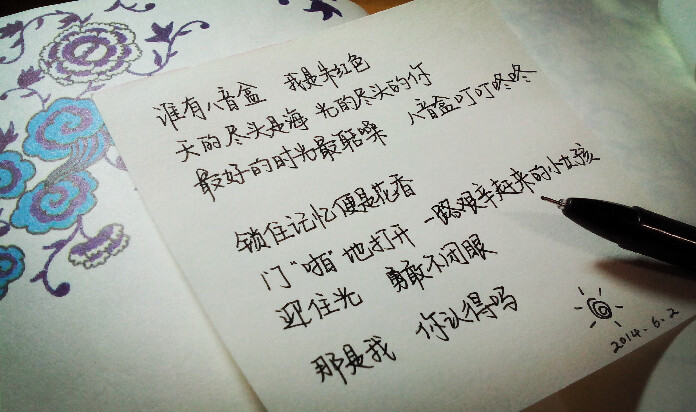 谁有八音盒 我是朱红色
天的尽头是海 光的尽头的你
最好的时光最聒噪 八音盒叮叮咚咚
锁住记忆便是花香
门“啪”地打开 一路艰辛赶来的小女孩
迎住光 勇敢不闭眼
那是我 你认得吗
2014.6.2